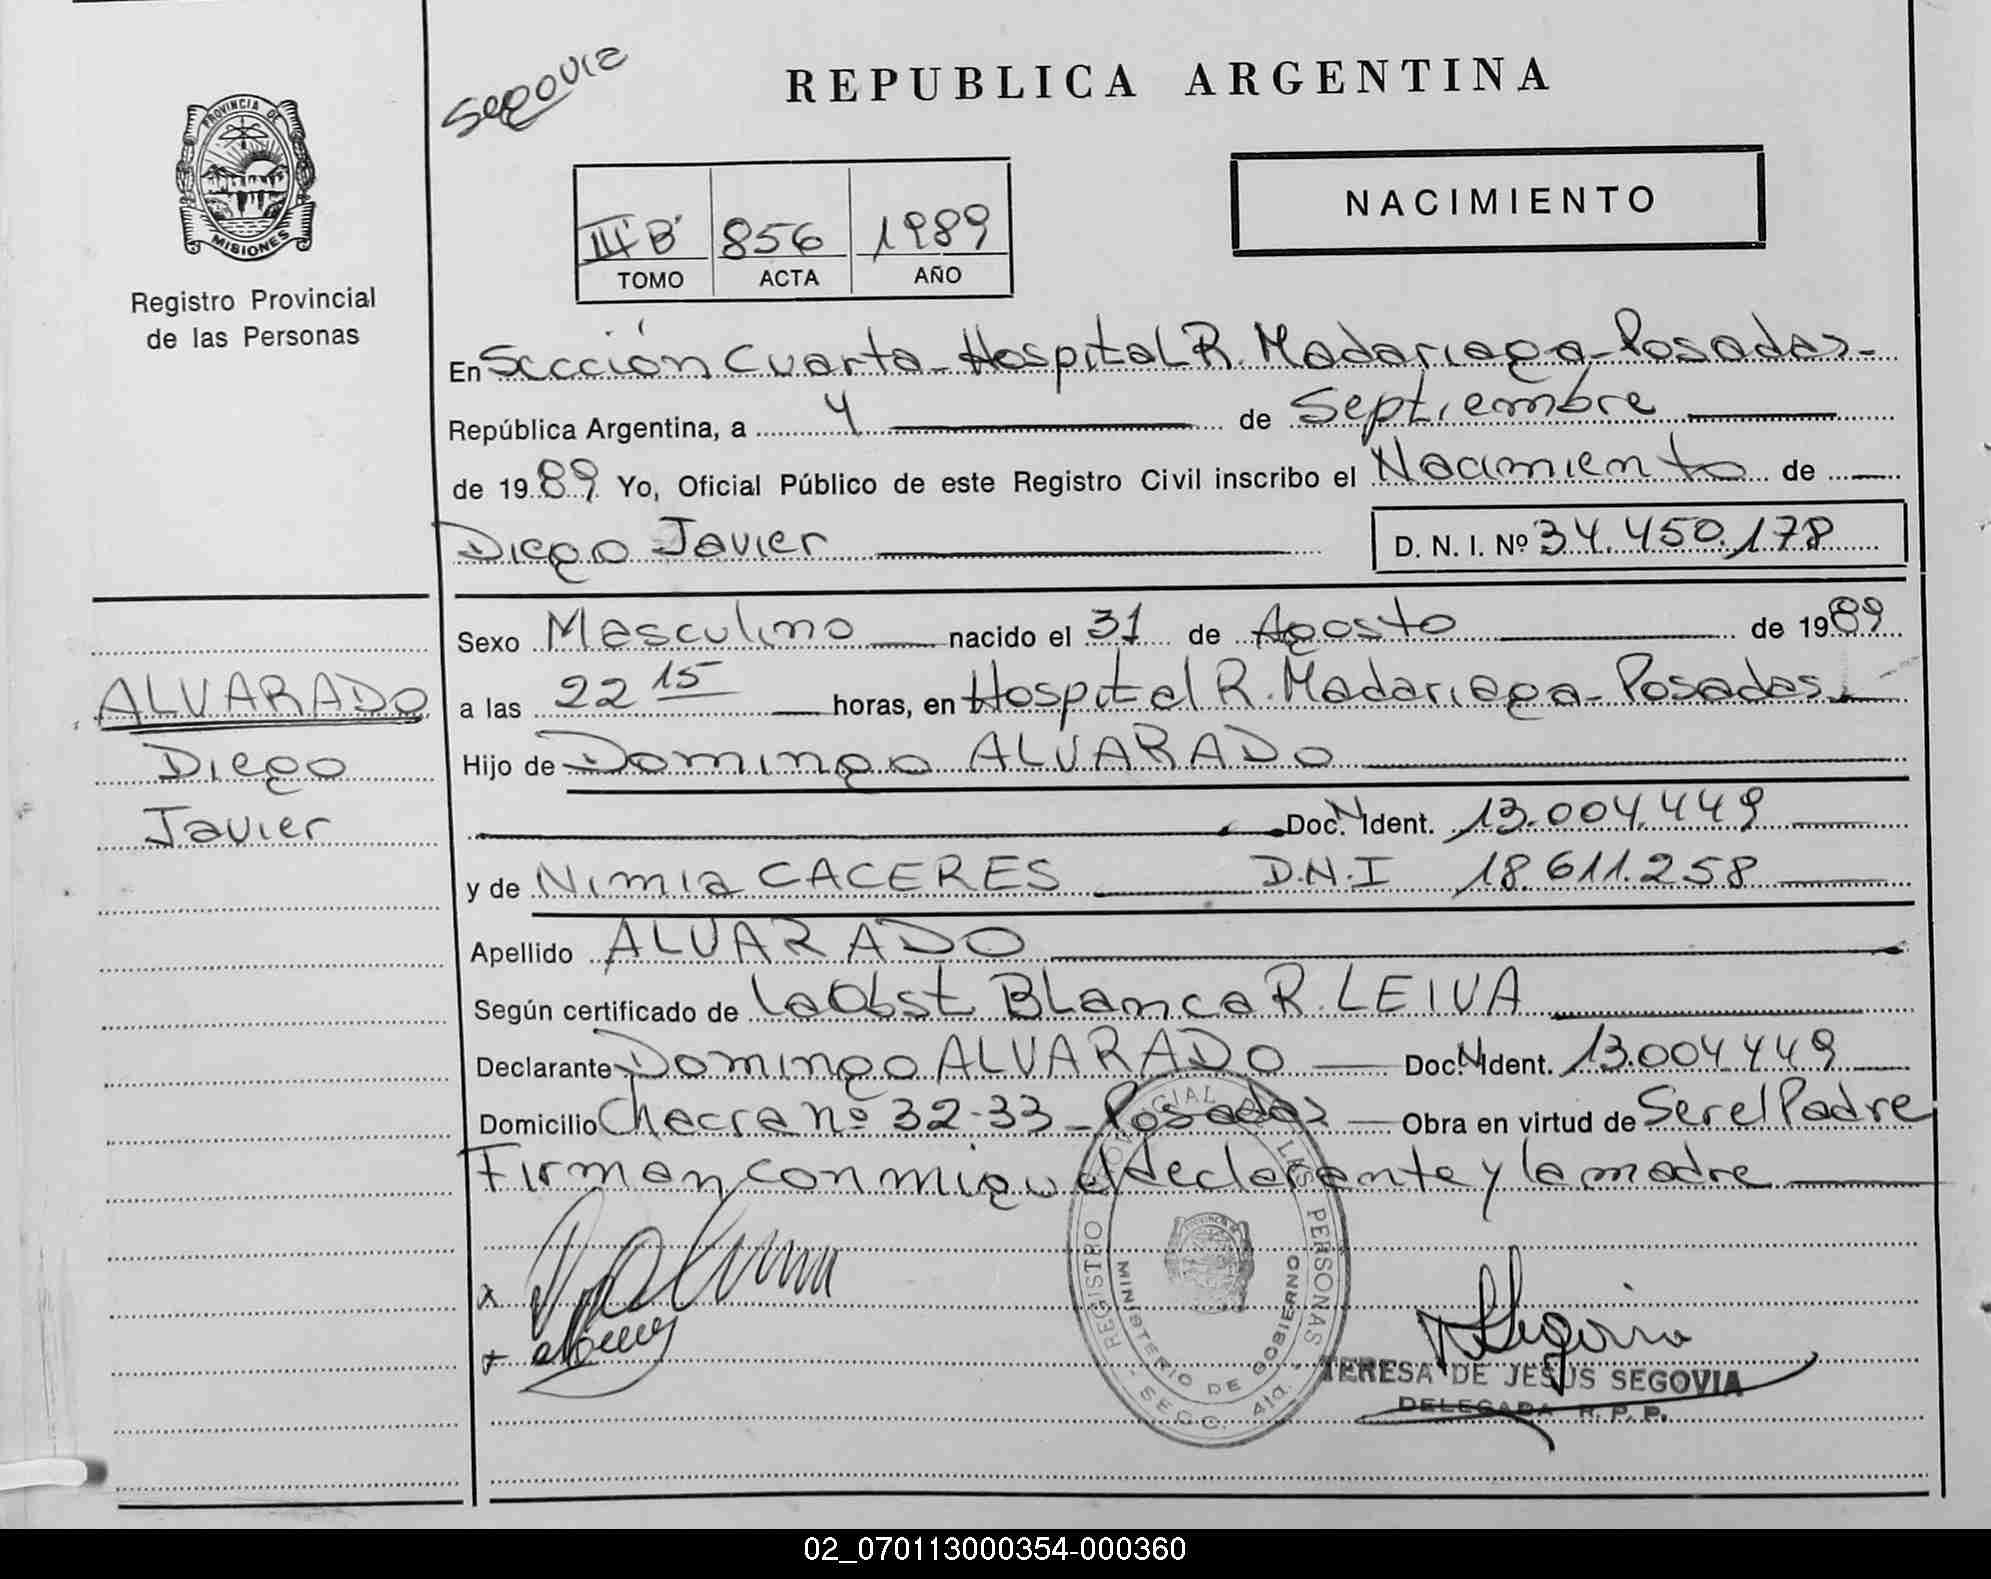 Segovia
REPUBLICA ARGENTINA
PROVINCIA DE
MISIONES
Registro Provincial
de las Personas
NACIMIENTO
III "B" 856 1989
TOMO ACTA AÑO
En Sección Cuarta - Hospital R. Madariaga - Posadas -
República Argentina, a 4 de Septiembre
de 1989 Yo, Oficial Público de este Registro Civil inscribo el Nacimiento de
Diego Javier D. N. I. Nº 34.450.178
Sexo Masculino nacido el 31 de Agosto de 1989
a las 22 15 horas, en Hospital R. Madariaga - Posadas
Hijo de Domingo ALVARADO
Doc. N Ident. 13.004.449
y de Nimia CACERES D.N.I 18.611.258
Apellido ALVARADO
Según certificado de la Obst. Blanca R. LEIVA
Declarante Domingo ALVARADO Doc. N Ident. 13.004.449
Domicilio Chacra nº 32-33 - Posadas Obra en virtud de Ser el Padre
Firman conmigo el declarante y la madre
ALVARADO
Diego
Javier
x
+
REGISTRO PROVINCIAL DE LAS PERSONAS
MINISTERIO DE GOBIERNO
- SECC. 4ta. -
TERESA DE JESUS SEGOVIA
DELEGADA R. P. P.
02_070113000354-000360